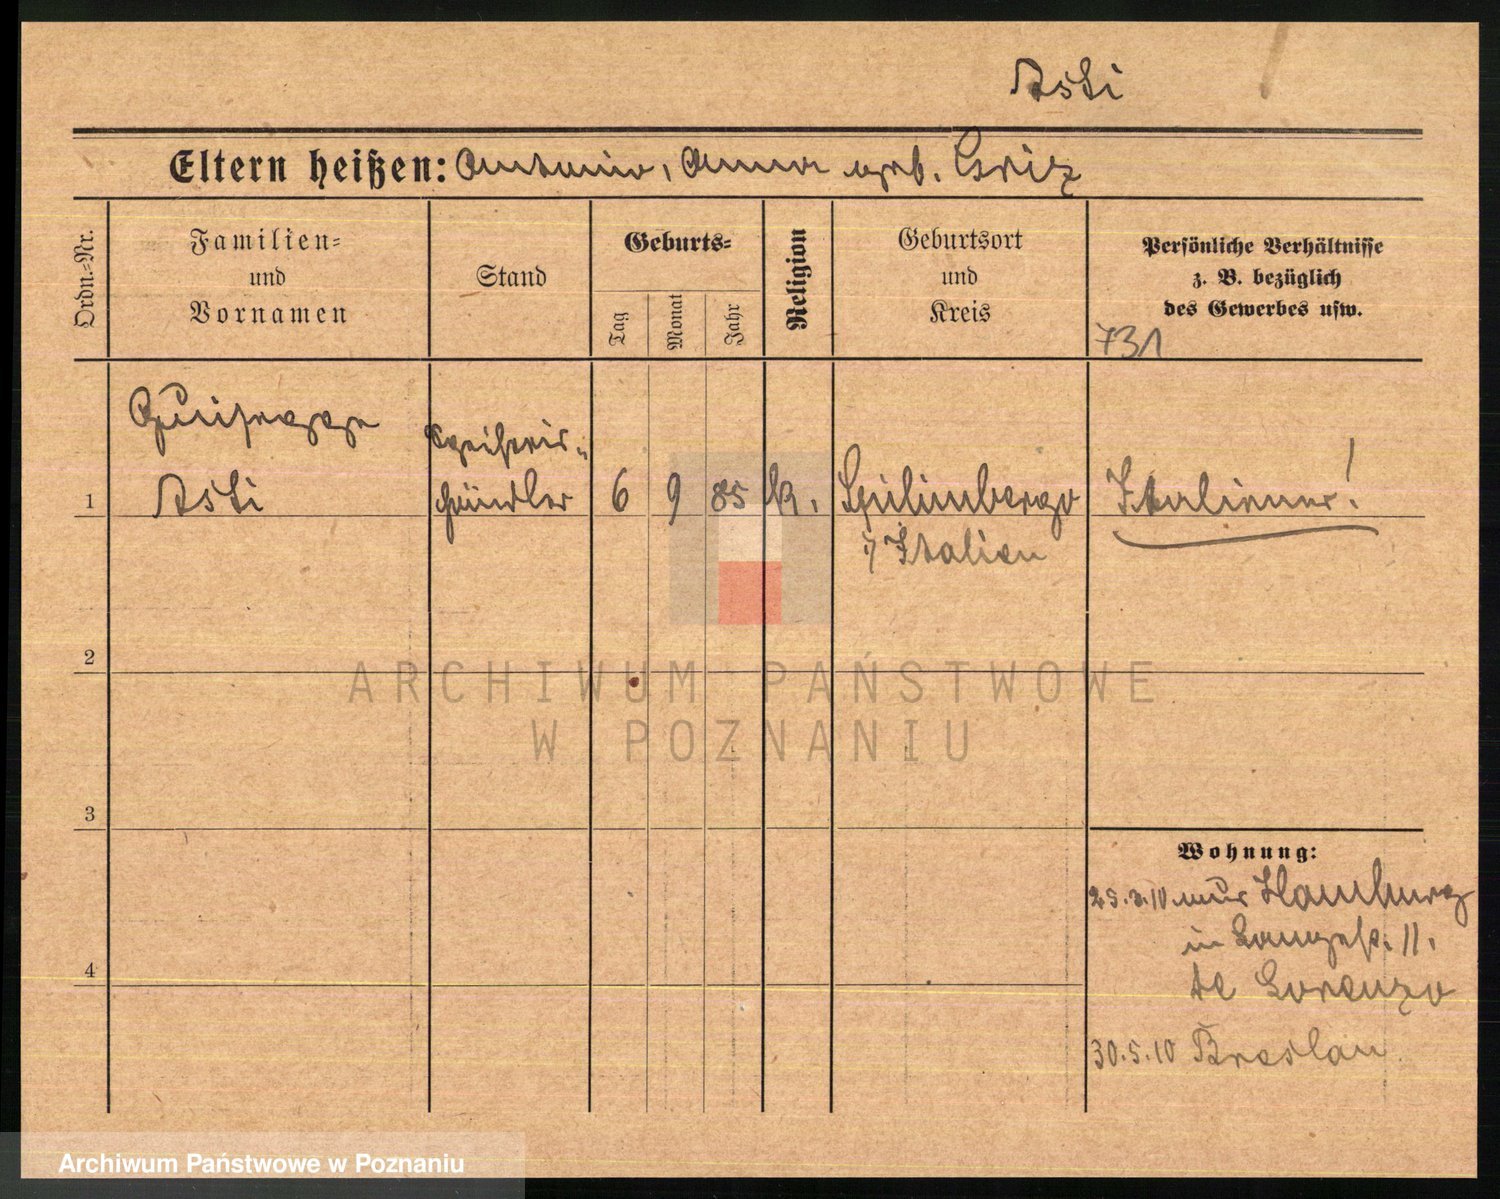 Asti
Eltern heißen: Antonio, Anna geb. Griz
Ordn.-Nr.
Familien-
und
Vornamen
Stand
Geburts-
Tag
Monat
Jahr
Religion
Geburtsort
und
Kreis
Persönliche Verhältnisse
z. B. bezüglich
des Gewerbes usw.
731
Guiseppe
Asti
händler
1
6
9
85
k.
Spilimbergo
i/ Italien
Italiener!
2
3
4
Wohnung:
10 aus Hamburg
in Langestr. 11.
de Lorenzo
30.5.10 Breslau
ARCHIWUM PAŃSTWOWE
W POZNANIU
Archiwum Państwowe w Poznaniu